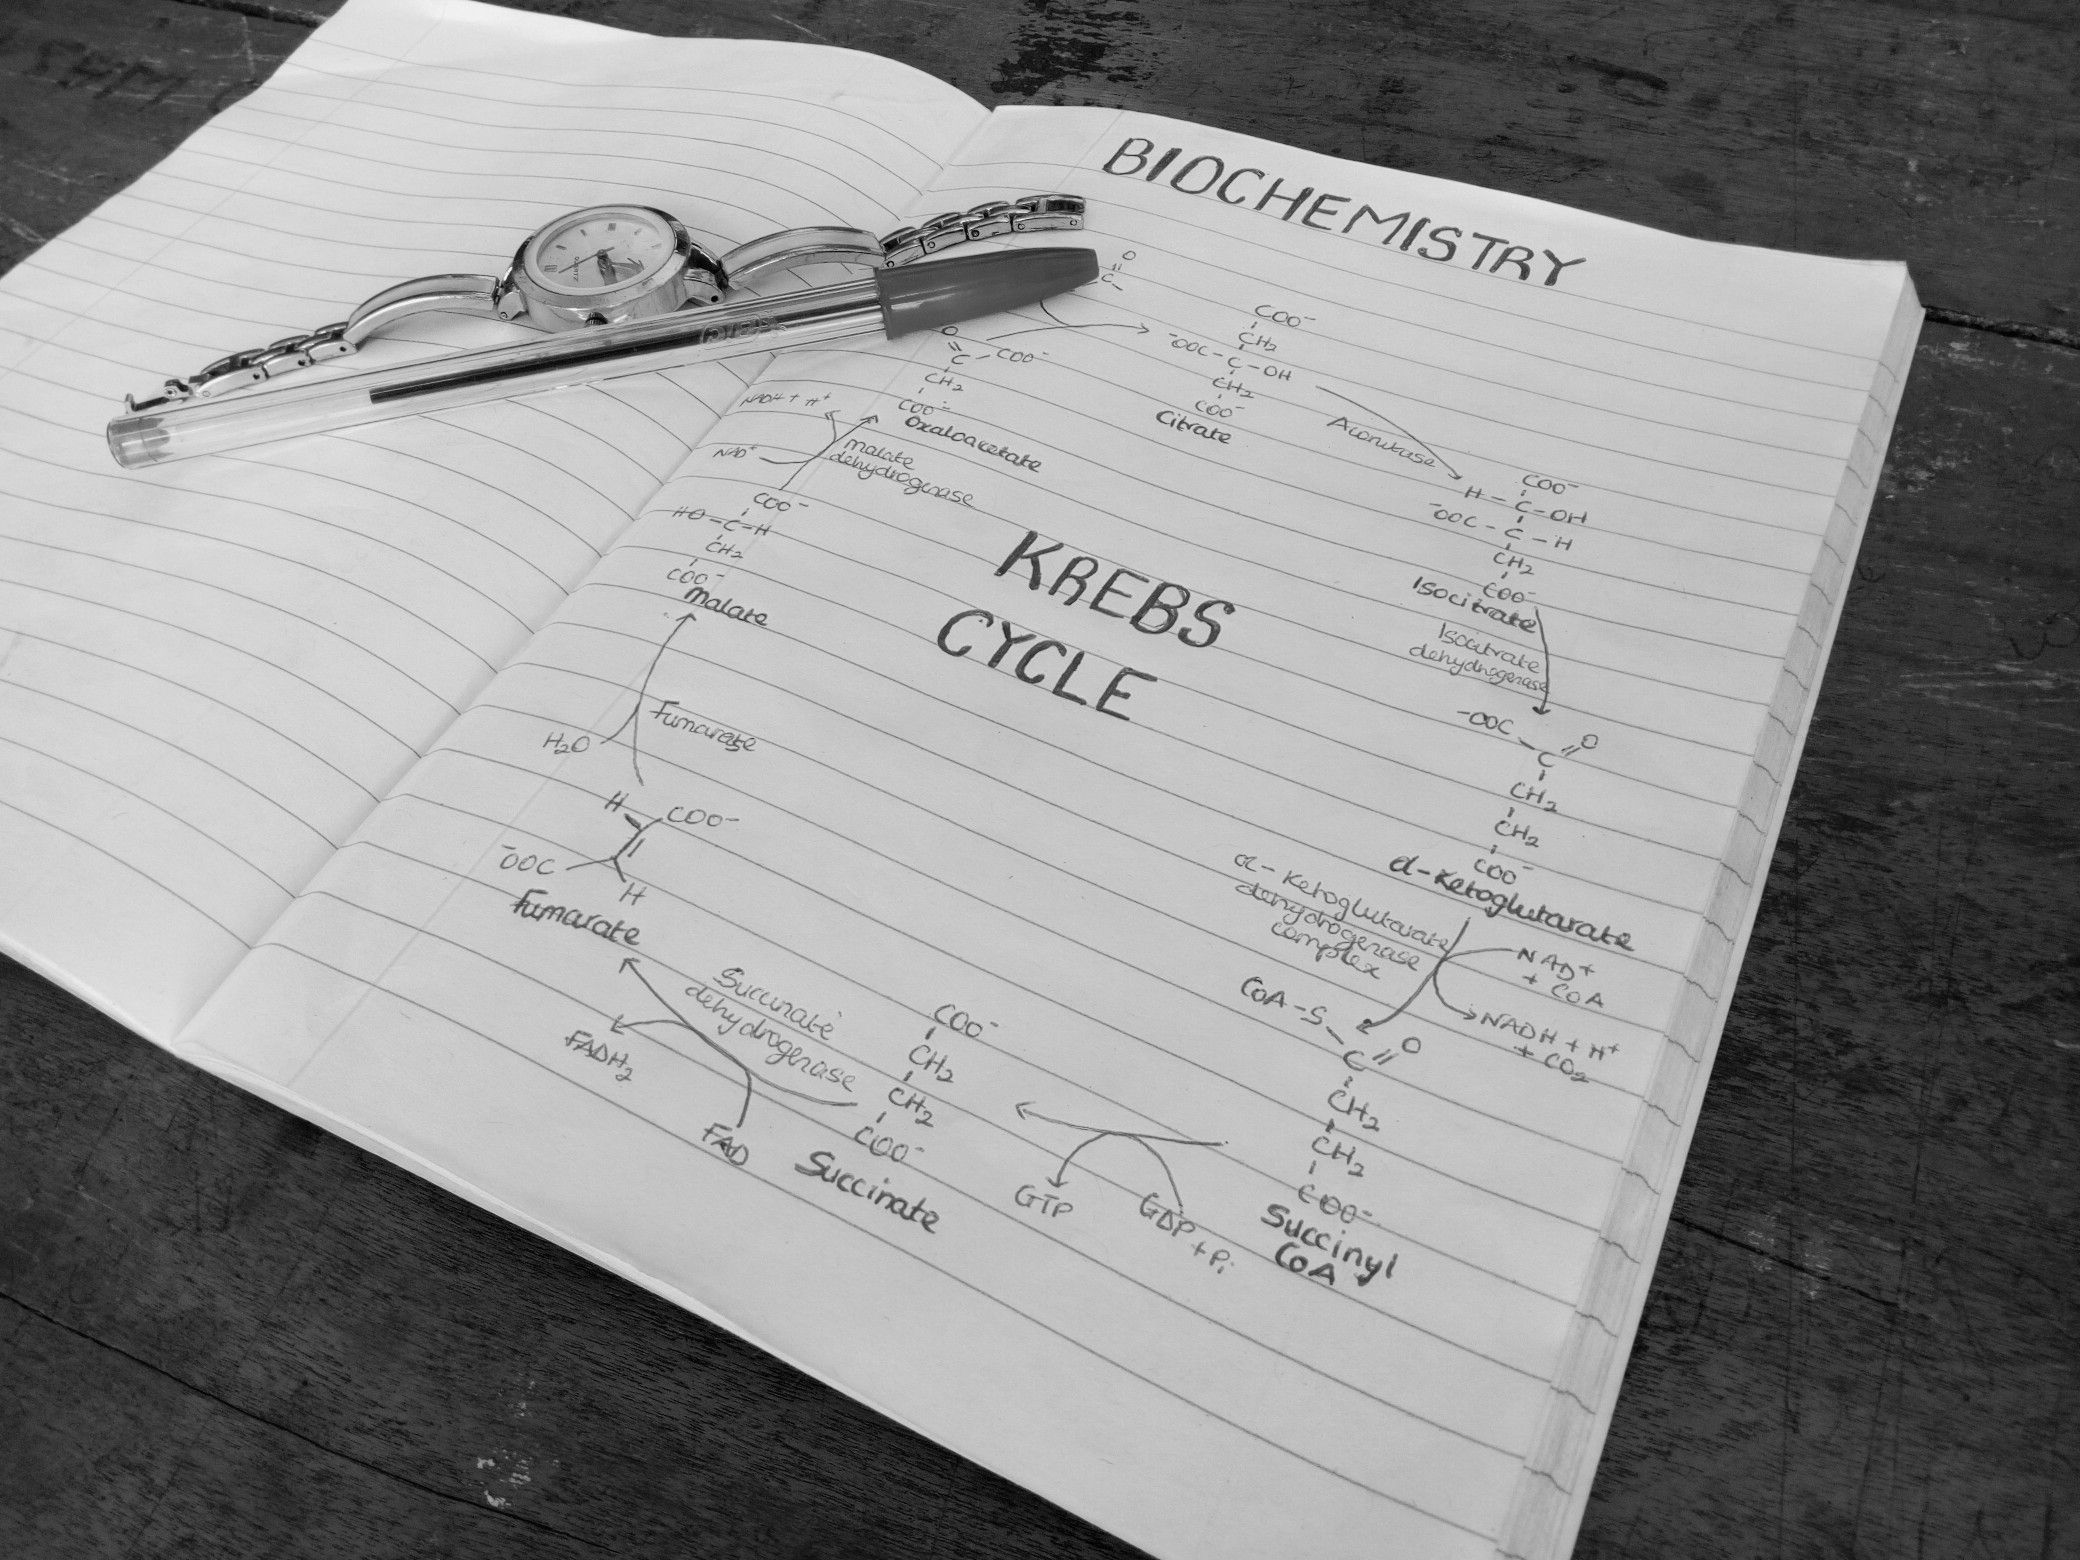 BIOCHEMISTRY
KREBS
CYCLE
QUARTZ
BIC
O
C
O
C – COO⁻
CH₂
COO⁻
Oxaloacetate
COO⁻
CH₂
⁻OOC – C – OH
CH₂
COO⁻
Citrate
Aconitase
COO⁻
H – C – OH
⁻OOC – C – H
CH₂
COO⁻
Isocitrate
Isocitrate
dehydrogenase
⁻OOC
C = O
CH₂
CH₂
COO⁻
α-Ketoglutarate
α-Ketoglutarate
dehydrogenase
complex
NAD⁺
+ CoA
NADH + H⁺
+ CO₂
CoA – S
C = O
CH₂
CH₂
COO⁻
Succinyl
CoA
GDP + Pi
GTP
COO⁻
CH₂
CH₂
COO⁻
Succinate
Succinate
dehydrogenase
FAD
FADH₂
H COO⁻
⁻OOC H
Fumarate
Fumarase
H₂O
COO⁻
HO – C – H
CH₂
COO⁻
Malate
malate
dehydrogenase
NAD⁺
NADH + H⁺